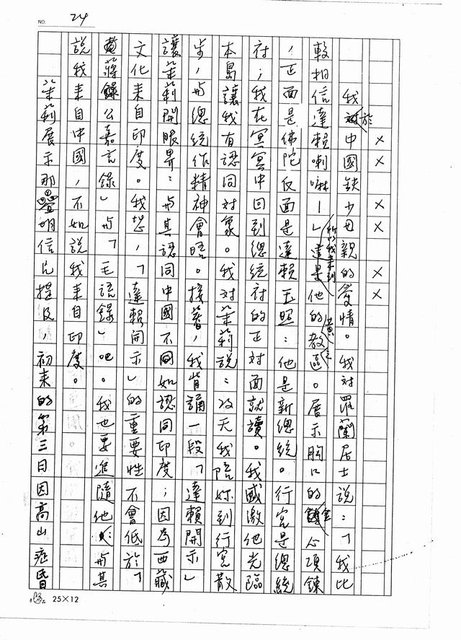 NO. 24
× × × × × ×
我於中國缺少母親的愛情。我對羅蘭居士說:「我比
較相信達賴喇嘛—所以我來到達是他的教區。展示胸口的鍊金項鍊
,正面是佛陀反面是達賴玉照:他是新總統。行宮是總統
府;我在冥冥中回到總統府的正對面就讀。我感激他光臨
本島讓我有認同對象。我對茉莉說:改天我陪妳到行宮散
步,與總統作精神會晤。接著,我背誦一段「達賴開示」
讓茉莉開眼界:與其認同中國不同如認同印度;因為西藏
文化來自印度。我想,「達賴開示」的重要性不會低於「
蔣公嘉言錄」與「毛語錄」吧。我也要追隨他,與其
說我來自中國,不如說我來自印度。
茉莉展示那疊明信片提及,初來的第三日因高山症昏
25×12